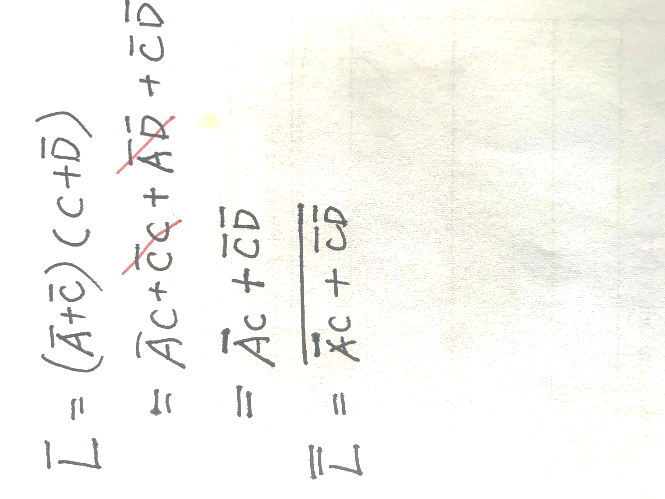 L̅ = (A̅+C̅)(C+D̅)
= A̅C+C̅C+A̅D̅+C̅D̅
= A̅C+C̅D̅
L̿ = \overline{A̅C + C̅D̅}